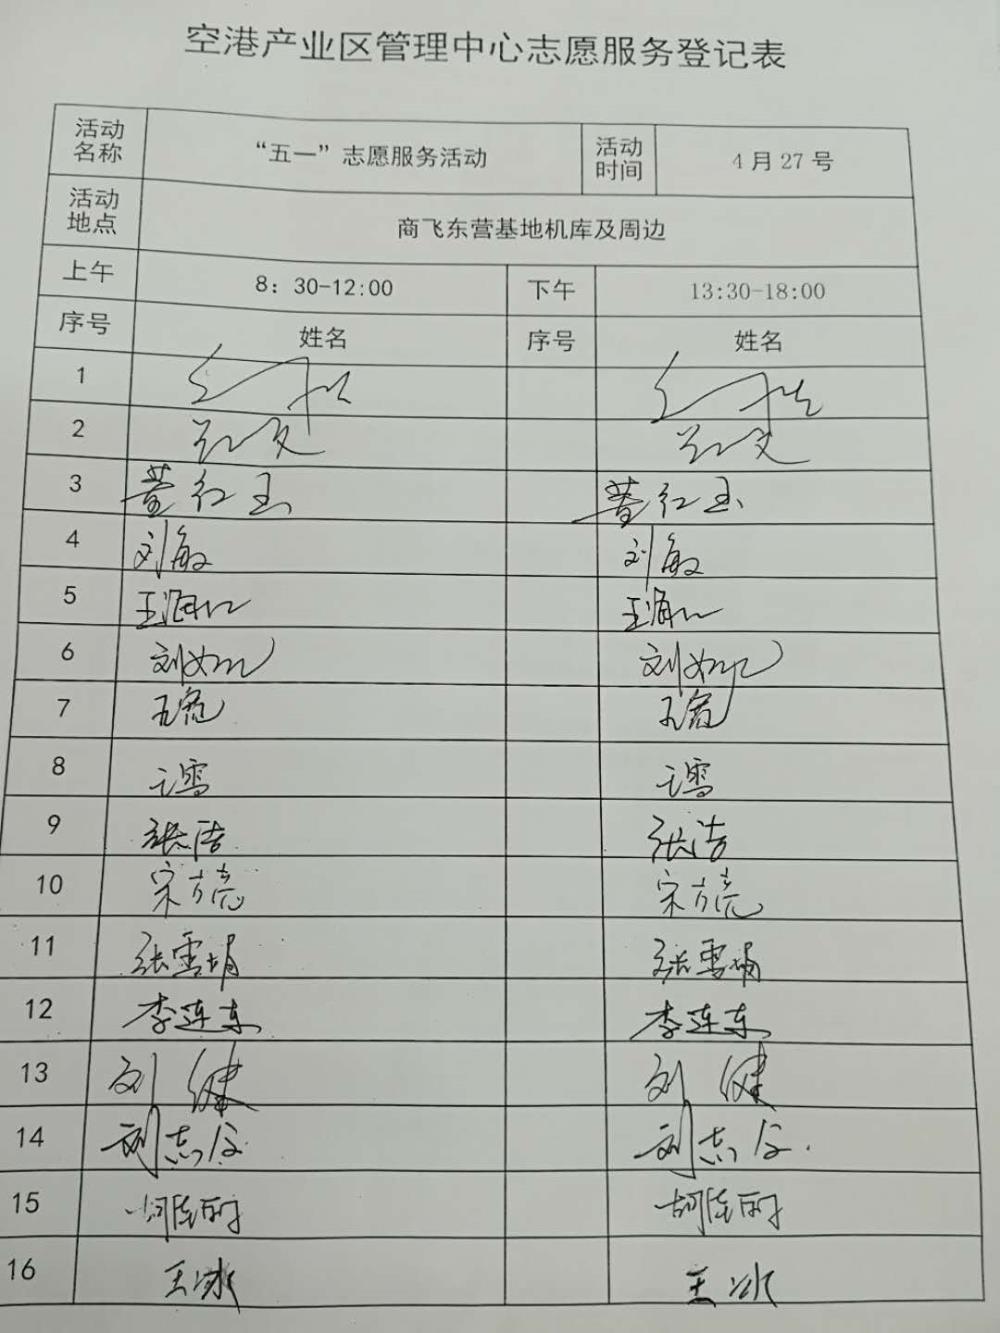 空港产业区管理中心志愿服务登记表
活动名称 “五一”志愿服务活动 活动时间 4月27号
活动地点 商飞东营基地机库及周边
上午 8：30-12:00 下午 13:30-18:00
序号 姓名 序号 姓名
1
2
3 董红玉 董红玉
4 刘敏 刘敏
5
6
7
8
9 张浩 张浩
10 宋方亮 宋方亮
11 张雪娟 张雪娟
12 李连东 李连东
13 刘健 刘健
14 刘志
15
16 王冰 王冰